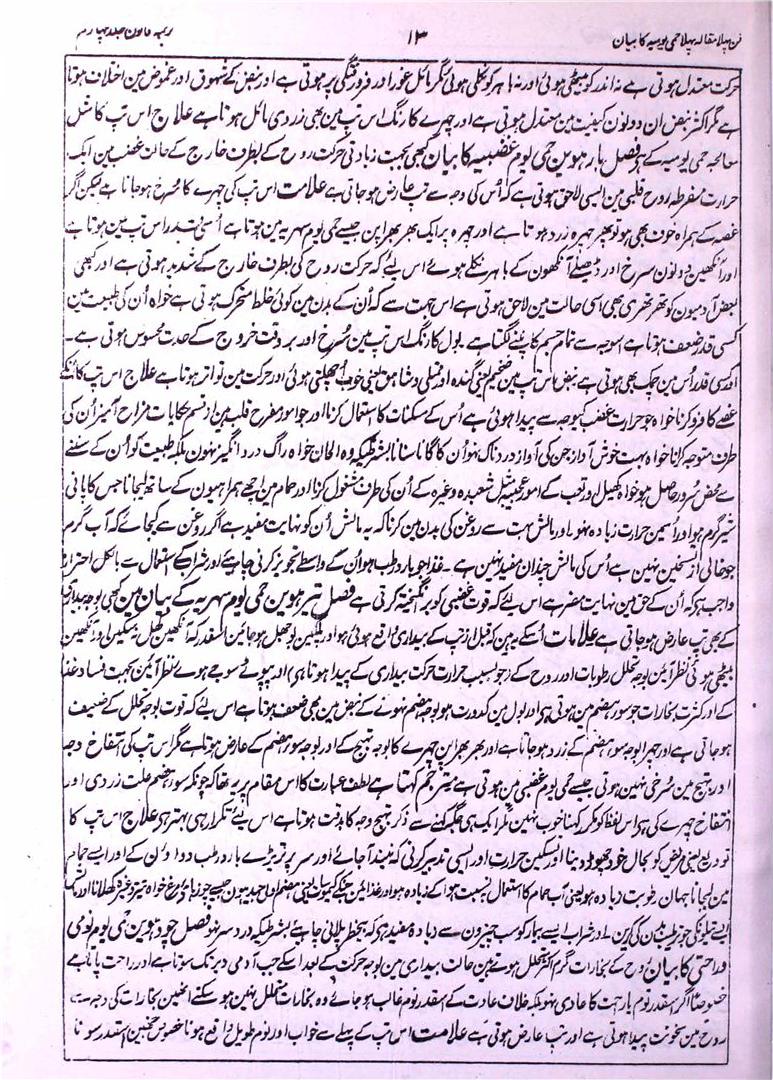 فن پہلا مقالہ پہلا حمی یومیہ کا بیان
۱۳
ترجمہ قانون جلد چہارم
حرکت معتدل ہوتی ہے نہ اندر کو بیٹھی ہوئی اور نہ باہر کو نکلی ہوئی مگر مائل غور اور فروتنگی پر ہوتی ہے اور نبض کے شہوق اور غموض مین اختلاف ہوتا
ہے مگر اکثر نبض ان دونون کیفیت مین معتدل ہوتی ہے اور چہرے کا رنگ اس تپ مین بھی زردی مائل ہوتا ہے علاج اس تپ کا مثل
معالجہ حمی یومیہ کے ہے فصل بارہوین حمی یوم غضبیہ کا بیان کبھی بجہت زیادتی حرکت روح کے بطرف خارج کے حالت غضب مین ایک
حرارت مفرطہ روح قلبی مین ایسی لاحق ہوتی ہے کہ اُس کی وجہ سے تپ عارض ہو جاتی ہے علامت اس تپ کی چہرے کا سُرخ ہو جانا ہے لیکن اگر
غصہ کے ہمراہ خوف بھی ہو تو پھر چہرہ زرد ہوتا ہے اور چہرہ پر ایک بھربھراپن جیسے حمی یوم سہریہ مین ہوتا ہے اُسی قدر اس تپ مین ہوتا ہے
اور آنکھین دونون سرخ اور ڈھیلے آنکھون کے باہر نکلے ہوئے اس لیے کہ حرکت روح کی بطرف خارج کے شدید ہوتی ہے اور کبھی
بعض آدمیون کو تھرتھری بھی اسی حالت مین لاحق ہوتی ہے اس جہت سے کہ اُن کے بدن مین کوئی خلط متحرک ہوتی ہے خواہ اُن کی طبیعت مین
کسی قدر ضعف ہوتا ہے اسوجہ سے تمام جسم کانپنے لگتا ہے۔ بول کا رنگ اس تپ مین سُرخ اور بروقت خروج کے حدت محسوس ہوتی ہے۔
اور کسی قدر اُس مین چمک بھی ہوتی ہے نبض اس تپ مین ضخیم یعنی گندہ اور ممتلی و شاہق یعنی خوب اُچھلتی ہوئی اور حرکت مین تواتر ہوتا ہے علاج اس تپ کا
غصے کا فرو کرنا خواہ جو حرارت غضب کیوجہ سے پیدا ہوئی ہے اُس کے مسکنات کا استعمال کرنا اور جو امور مفرح قلب از قسم حکایات مزاح آمیز اُن کی
طرف متوجہ کرانا خواہ بہت خوش آواز جن کی آواز دردناک نہو اُن کا گانا سنانا بشرطیکہ وہ الحان خواہ راگ درد انگیز نہون بلکہ طبیعت کو اُن کے سننے
سے محض سُرور حاصل ہو خواہ کھیل اور تماشے کے امور عجیبہ مثل شعبدہ وغیرہ کے اُن کی طرف مشغول کرنا اور حمام مین اچھے ہمراہیون کے ساتھ لیجانا جس کا پانی
شیر گرم ہو اور اُسمین حرارت زیادہ نہو۔ اور مالش بہت سے روغن کی بدن مین کرنا کہ یہ مالش اُن کو نہایت مفید ہے اگر روغن سے کیجائے کہ آب گرم
جو خالی از تسخین نہین ہے اُس کی مالش چندان مفید نہین ہے۔ غذا جو بارد رطب ہو اُن کے واسطے تجویز کرنی چاہیے اور شراب کے استعمال سے بالکل احتراز
واجب ہے کہ اُن کے حق مین نہایت مضر ہے اس لیے کہ قوت غضبی کو برانگیختہ کرتی ہے فصل تیرہوین حمی یوم سہریہ کے بیان مین کبھی بوجہ بیداری
کے بھی تپ عارض ہو جاتی ہے علامات اُسکے یہ ہین کہ قبل از تپ کے بیداری واقع ہوئی ہو اور پلکین بوجھل ہو جائین اسقدر کہ آنکھین کھل نہ سکین اور آنکھین
بیٹھی ہوئی نظر آئین بوجہ تحلل رطوبات اور روح کے (جو بسبب حرارت حرکت بیداری کے پیدا ہوتا ہی) اور پپوٹے سوجے ہوے نظر آئین بجہت فساد غذا
کے اور کثرت بخارات جو سوء ہضم مین ہوتی ہی اور بول مین کدورت ہو بوجہ ہضم نہونے کے نبض مین بھی ضعف ہوتا ہے اس لیے کہ قوت بوجہ تحلل کے ضعیف
ہو جاتی ہے اور چہرا بوجہ سوء ہضم کے زرد ہو جاتا ہے اور بھربھراپن چہرے کا بوجہ تہیج کے اور بوجہ سوء ہضم کے عارض ہوتا ہے مگر اس تپ کی انتفاخ وجہ
اور تہیج مین سُرخی نہین ہوتی جیسے حمی یوم غضبی مین ہوتی ہے مترجم کہتا ہے لطف عبارت کا اس مقام پر یہ تھا کہ چونکہ سوء ہضم علت زردی اور
انتفاخ چہرے کی ہی اس لفظ کو مکرر کہنا خوب نہین مگر ایک ہی جگہ کہنے سے ذکر تہیج وجہ کا فوت ہوتا ہے اس لیے تکرار ہی بہتر ہی علاج اس تپ کا
تودیع یعنی مریض کو بحال خود چھوڑ دینا اور تسکین حرارت اور ایسی تدبیر کرنی کہ نیند آجائے اور سر پر تریڑے بارد رطب دواؤن کے اور ایسے حمام
مین لیجانا جہان رطوبت زیادہ ہو یعنی آب حمام کا استعمال بہ نسبت ہوا کے زیادہ ہو اور غذا مین جنکے کیموسات یعنی ہضم اول جید ہون جیسے چوزہ ہائے مرغ خواہ تیتر وغیرہ کھلانا اور
ایسے تیلونکی جو ترطیب بدن کی کرین۔ اور شراب ایسے بیمار کو سب چیزون سے زیادہ مفید ہی کہ بیخطر پلانی چاہئے بشرطیکہ درد سر نہو فصل چودہوین حمی یوم نومی
و راحتی کا بیان روح کے بخارات گرم اکثر تحلل ہوتے ہین حالت بیداری مین بوجہ حرکت کے بعد اسکے جب آدمی دیر تک سوتا ہے اور راحت پاتا ہے
خصوصًا اگر اسقدر نوم یا راحت کا عادی نہو بلکہ خلاف عادت کے اسقدر نوم غالب ہو جائے وہ بخارات متحلل نہین ہو سکتے انھین بخارات کی وجہ سے
روح مین سخونت پیدا ہوتی ہے اور تپ عارض ہوتی ہے علامت اس تپ کے پہلے سے خواب اور نوم طویل واقع ہونا خصوص جنھین اسقدر سونا